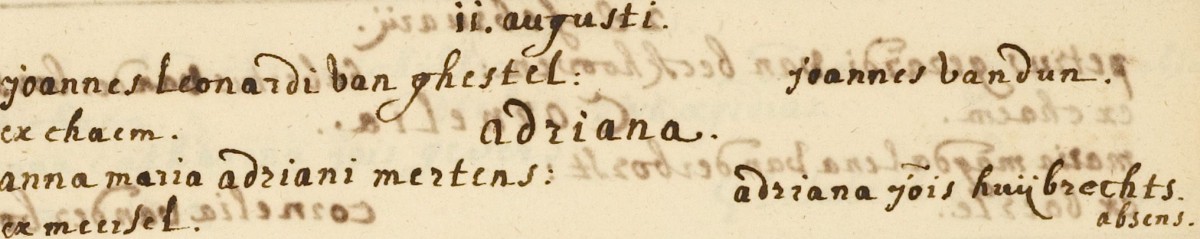 ii. augusti.
joannes Leonardi van ghestel:
joannes vandun.
ex chaem.
adriana.
anna maria adriani mertens:
adriana jois huijbrechts.
absens.
ex meersel.